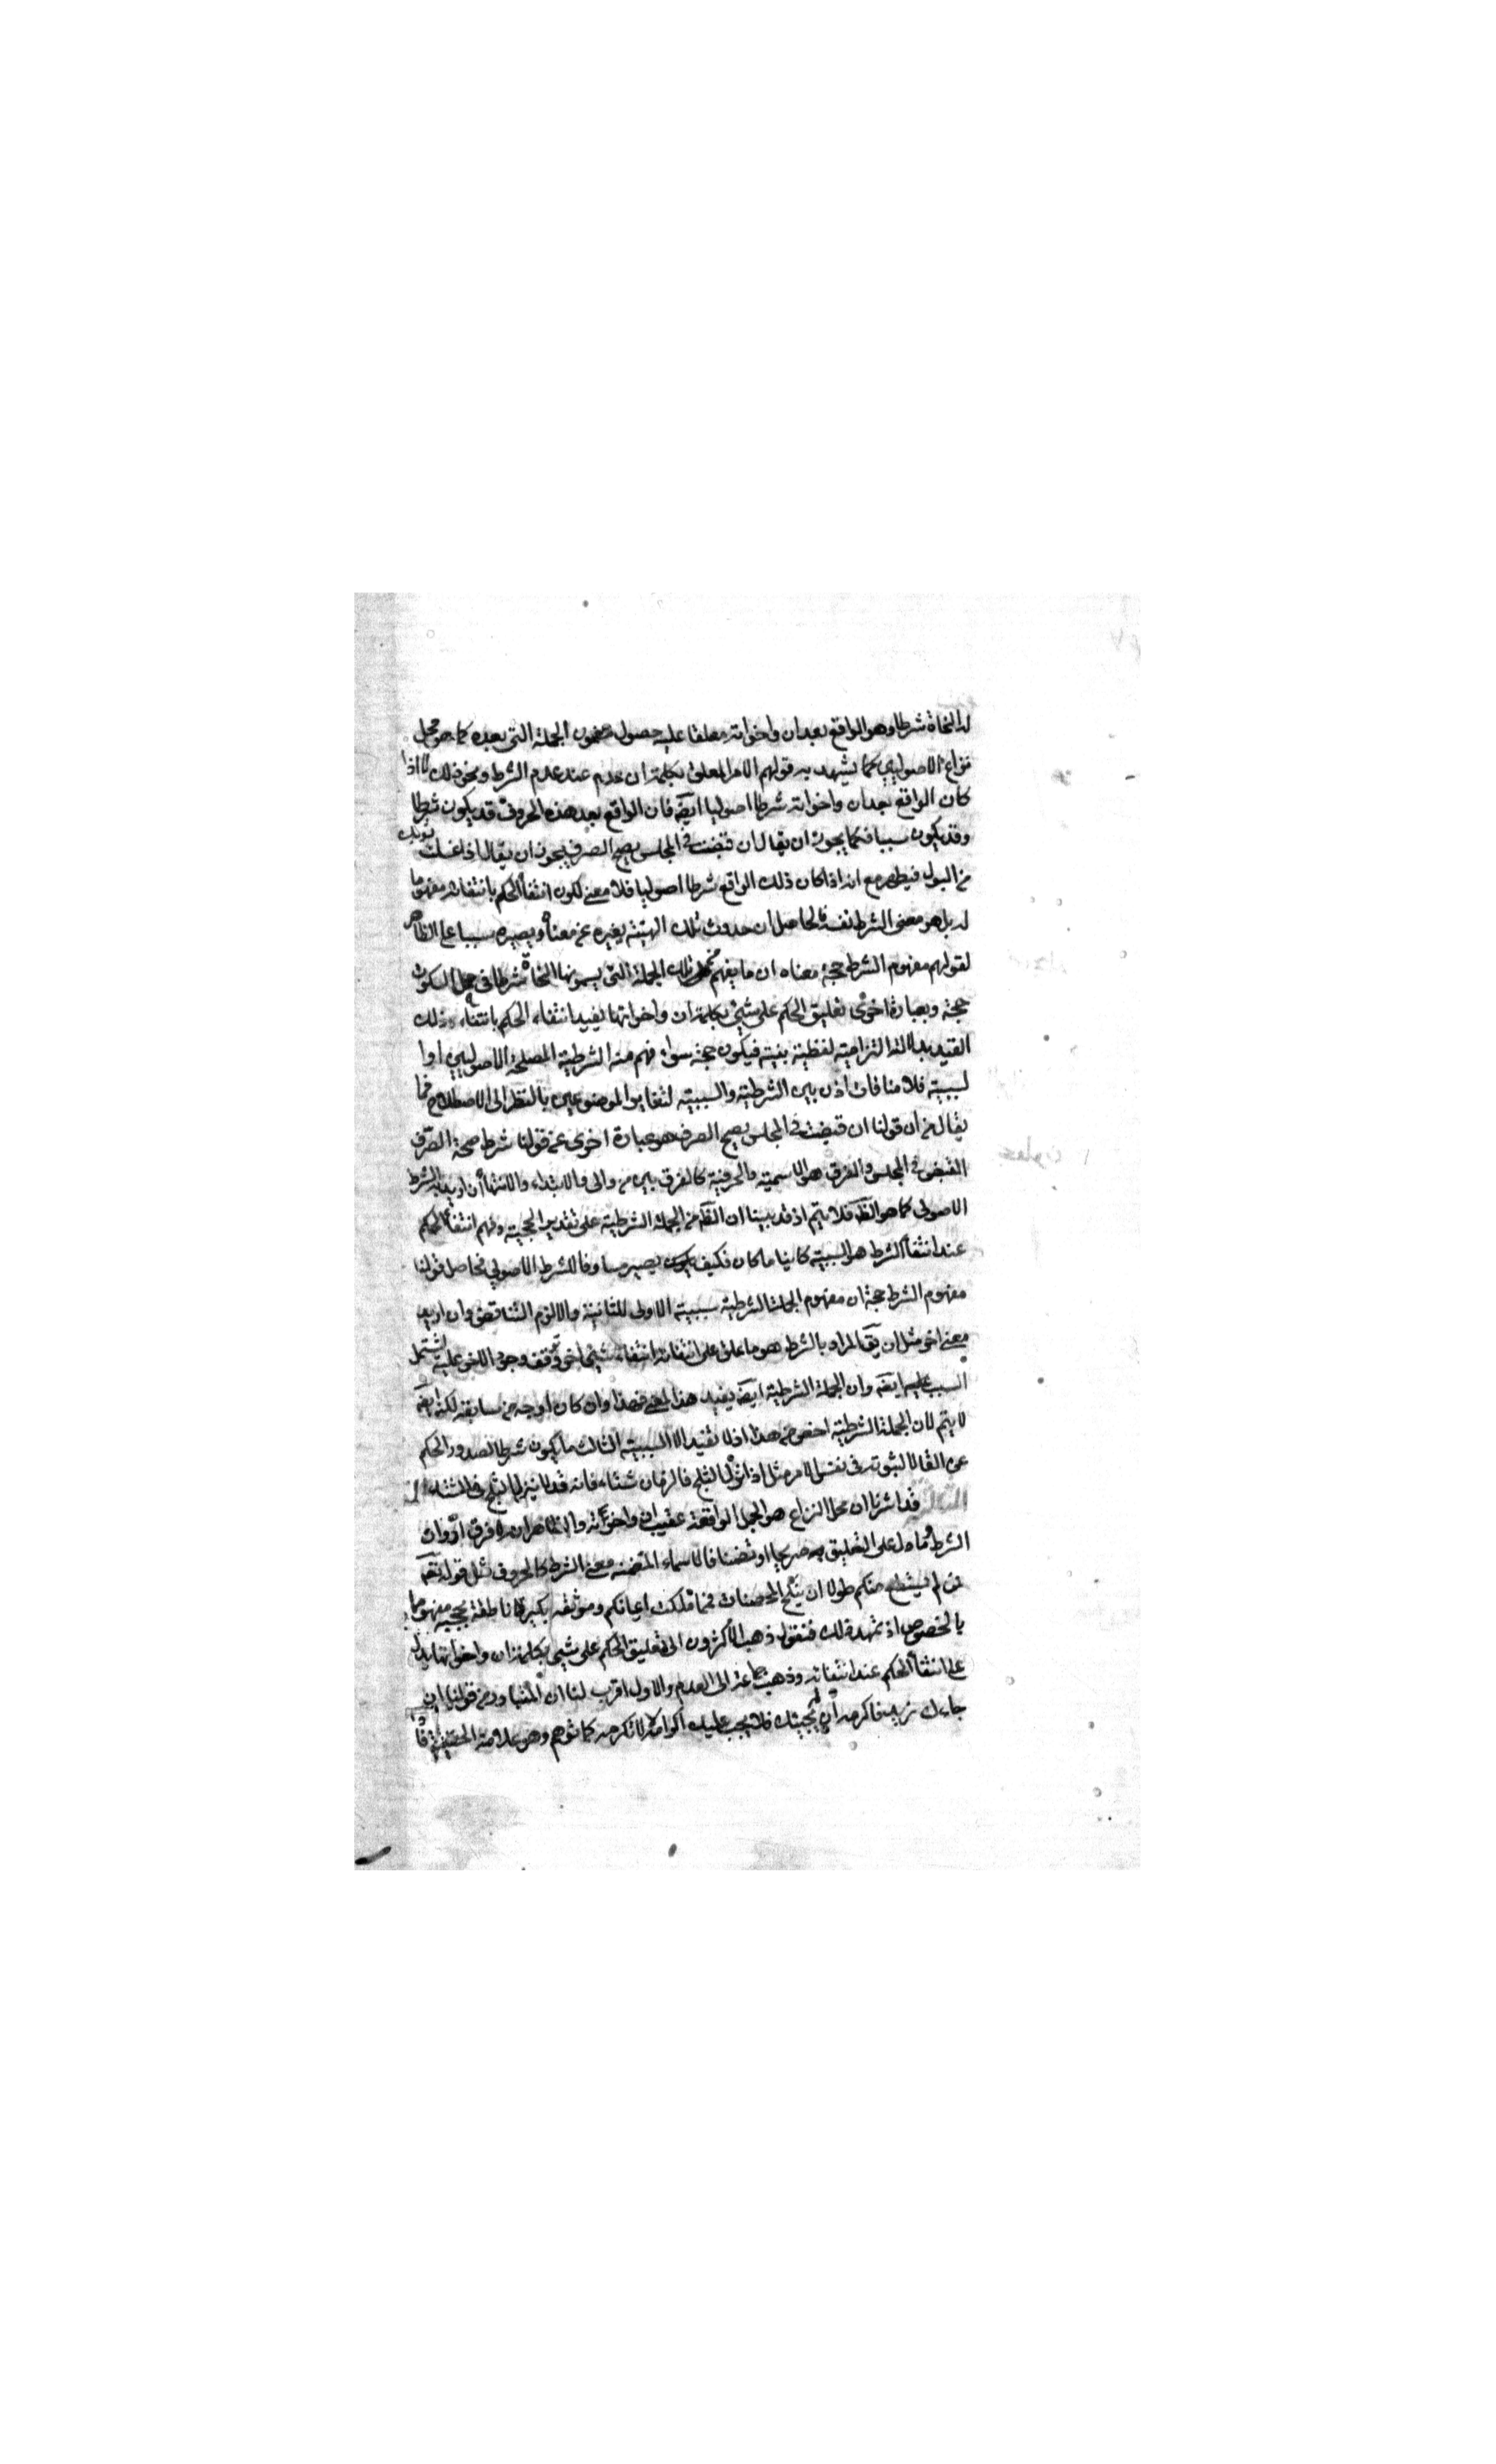 له النحاة شرطا وهو الواقع بعد ان واخواته معلقا عليه حصول مضمون الجملة التي بعده كما هو محل
نزاع الاصوليين كما يشهد به قولهم الامر المعلق بكلمة ان عدم عند عدم الشرط ونحو ذلك لا اذا
كان الواقع بعد ان واخواته شرطا اصوليا ايضۤ فان الواقع بعد هذه الحروف قد يكون شرطا
وقد يكون سببا فكما يجوز ان يقال ان قبضت في المجلس يصح الصرف يجوز ان يقال اذا غسلت ثوبك
من البول فيطهر مع انه اذا كان ذلك الواقع شرطا اصوليا فلا معنى لكون انتفاء الحكم بانتفائه مفهوما
له بل هو معنى الشرط نفسه فالحاصل ان حدوث تلك الهيئة يغيره عن معناه ويصيره سببا على الظاهر
لقولهم مفهوم الشرط حجة معناه ان ما يفهم من تلك الجملة التي يسمونها النحاة شرطا في محل السكوت
حجة وبعبارة اخرى تعليق الحكم على شيئ بكلمة ان واخواتها يفيد انتفاء الحكم بانتفاء ذلك
القيد بدلالة التزامية لفظية بنية فيكون حجة سواء فهم منه الشرطية المصطلحة الاصوليين او ا
لسببية فلا منافات اذن بين الشرطية والسببية لتغاير الموضوعين بالنظر الى الاصطلاح فما
يقال من ان قولنا ان قبضت في المجلس يصح الصرف هو عبارة اخرى عن قولنا شرط صحة الصرف
القبض في المجلس والفرق هو الاسمية والحرفية كالفرق بين من والى والابتداء والانتهاء ان اريد به الشرط
الاصولي كما هو الظۤ فلا يتم اذ قد بينا ان الظۤ من الجملة الشرطية على تقدير الحجية وفهم انتفاء الحكم
عند انتفاء الشرط هو السببية كاينا ما كان فكيف يكون يصير مساوقا للشرط الاصولي فحاصل قولنا
مفهوم الشرط حجة ان مفهوم الجملة الشرطية سببية الاولى للثانية والا لزم التناقض وان اريد
معنى اخر مثل ان يقۤ المراد بالشرط هو ما علق على انتفائه انتفاء شيئ اخر وتوقف وجود الاخر عليه ليشتمل
السبب عليه ايضۤ وان الجملة الشرطية ايضۤ يفيد هذا المعنى فهذا وان كان اوجه من سابقه لكنه ايضۤ
لا يتم لان الجملة الشرطية اخص من هذا اذ لا تفيد الا السببية الثالث ما يكون شرطا لصدور الحكم
عن القائل لثبوته في نفس الامر مثل اذا نزل الثلج فالزمان شتاء فانه قد لا ينزل الثلج في الشتاء
الثالثة قد اشرنا ان محل النزاع هو الجمل الواقعة عقيب ان واخواته والظاهر انه لا فرق ادوات
الشرط وما دل على التعليق به صريحا او تضمنا فالاسماء المتضمنة معنى الشرط كالحروف مثل قوله تعۤ
فمن لم يستطع منكم طولا ان ينكح المحصنات فمما ملكت ايمانكم وموثقة بكير ناطقة بحجية مفهومها
بالخصوص اذ تمهد ذلك فنقول ذهب الاكثرون الى تعليق الحكم على شيئ بكلمة ان واخواتها يدل
على انتفاء الحكم عند انتفائه وذهب جماعة الى العدم والاول اقرب لنا ان المتبادر من قولنا ان
جاءك زيد فاكرمه ان لم يجيئك فلا يجب عليك اكرامه لا لا تكرمه كما توهم وهو علامة الحقيقة فا